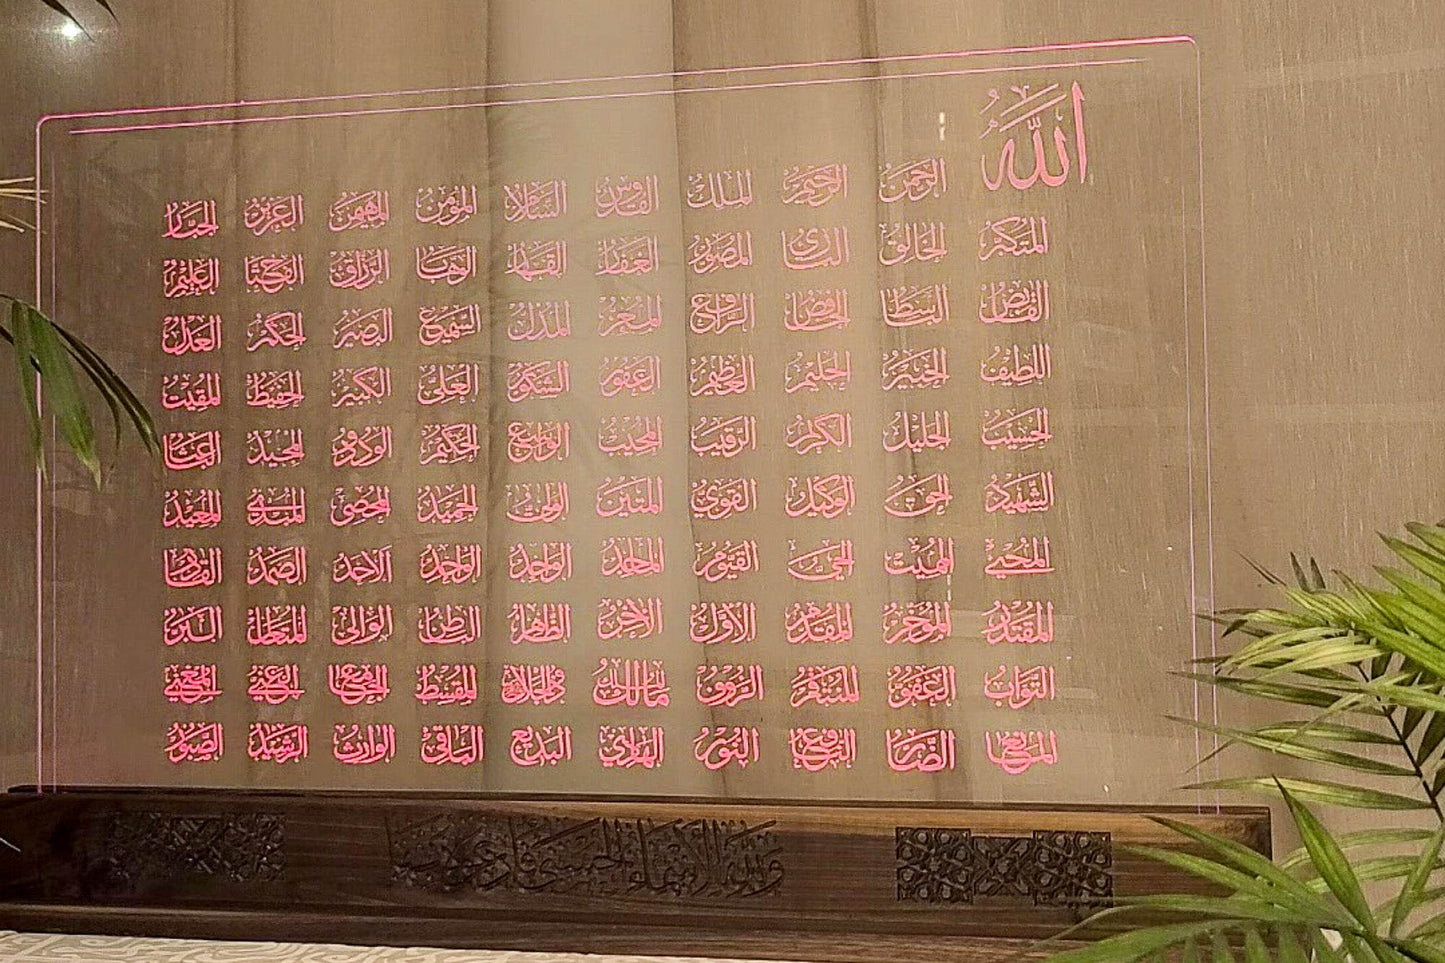 الله
الرحمن الرحيم الملك القدوس السلام المؤمن المهيمن العزيز الجبار
المتكبر الخالق البارئ المصور الغفار القهار الوهاب الرزاق الفتاح العليم
القابض الباسط الخافض الرافع المعز المذل السميع البصير الحكم العدل
اللطيف الخبير الحليم العظيم الغفور الشكور العلي الكبير الحفيظ المقيت
الحسيب الجليل الكريم الرقيب المجيب الواسع الحكيم الودود المجيد الباعث
الشهيد الحق الوكيل القوي المتين الولي الحميد المحصي المبدئ المعيد
المحيي المميت الحي القيوم الماجد الواجد الواحد الاحد الصمد القادر
المقتدر المؤخر المقدم الاول الاخر الظاهر الباطن الوالي المتعال البر
التواب العفو المنتقم الرؤوف مالك الملك ذو الجلال المقسط الجامع الغني المغني
المانع الضار النافع النور الهادي البديع الباقي الوارث الرشيد الصبور
ولله الاسماء الحسنى فادعوه بها